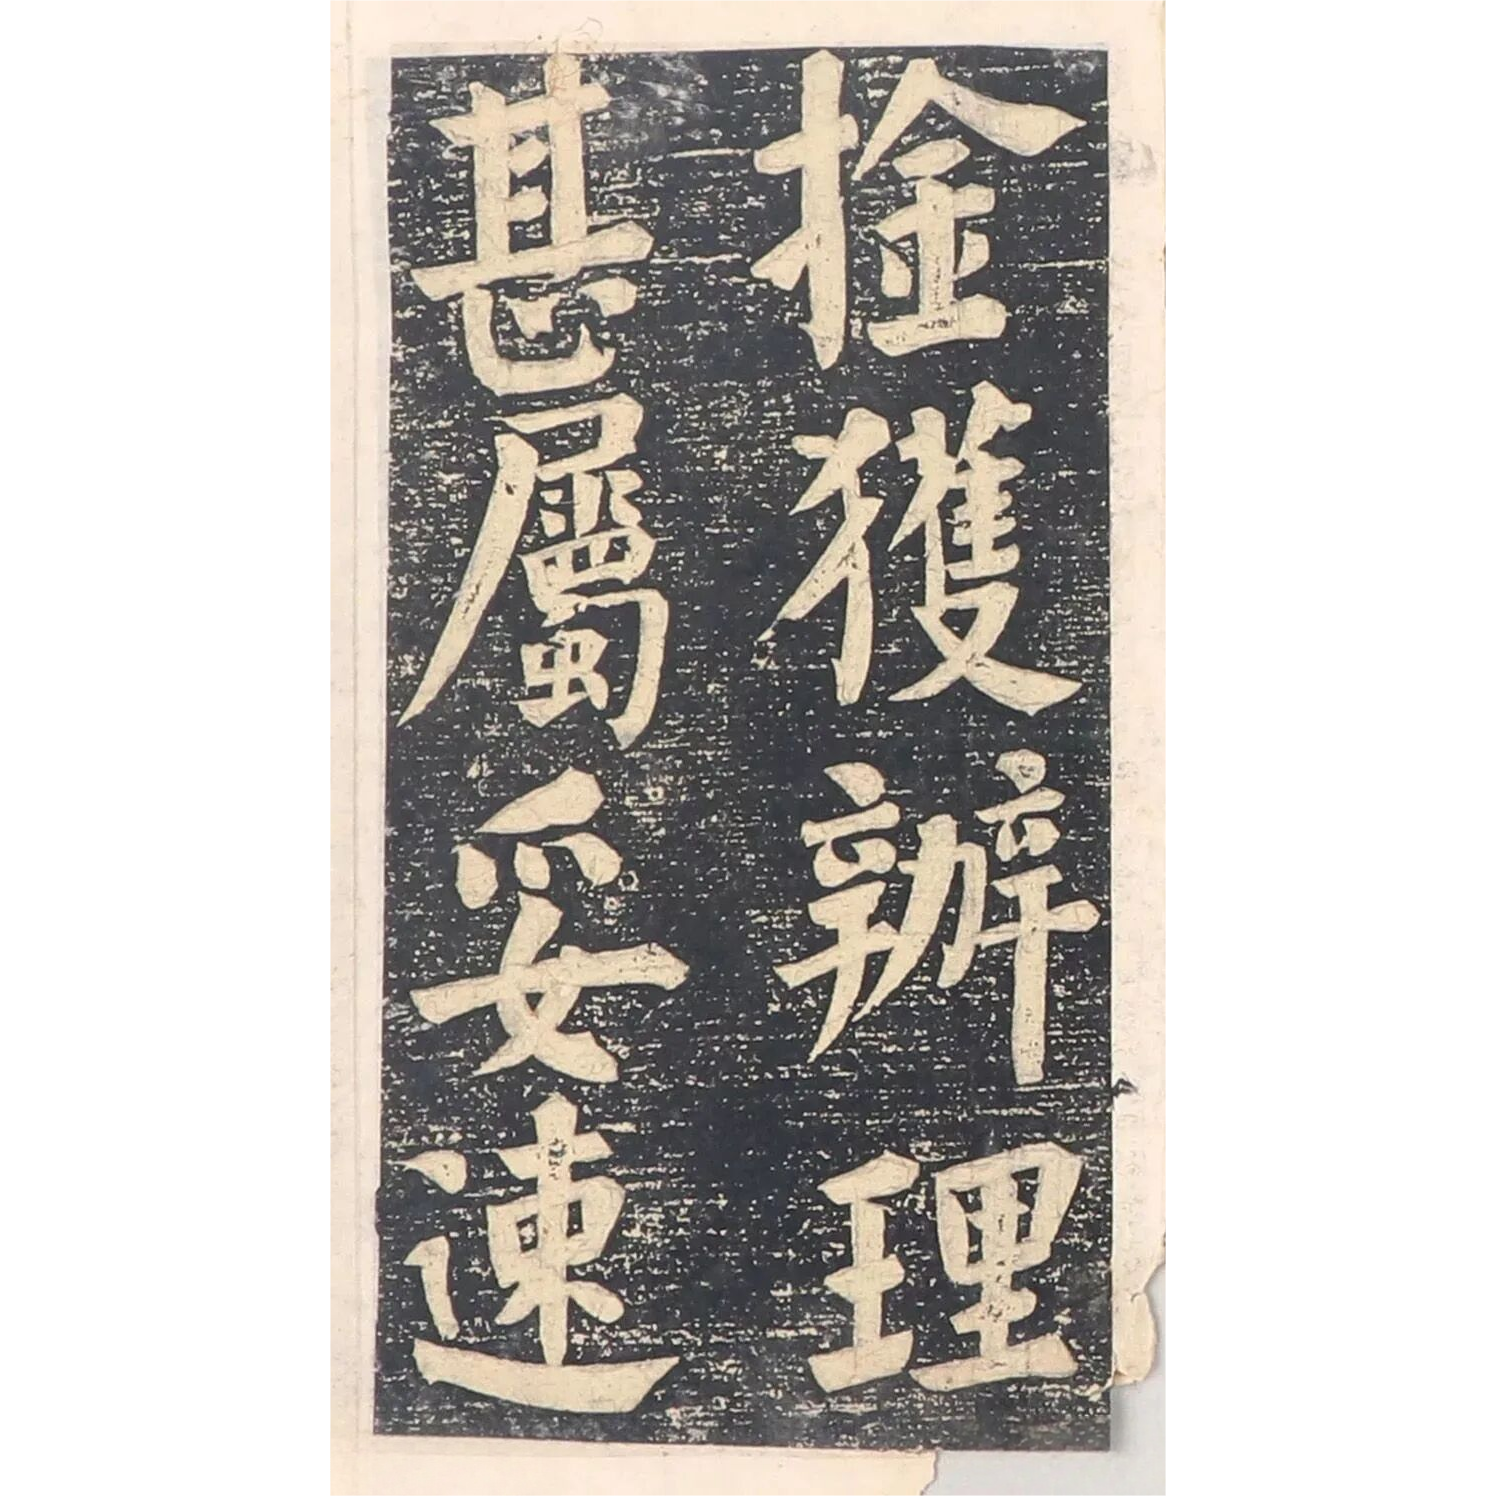 捦獲辦理
甚屬妥速